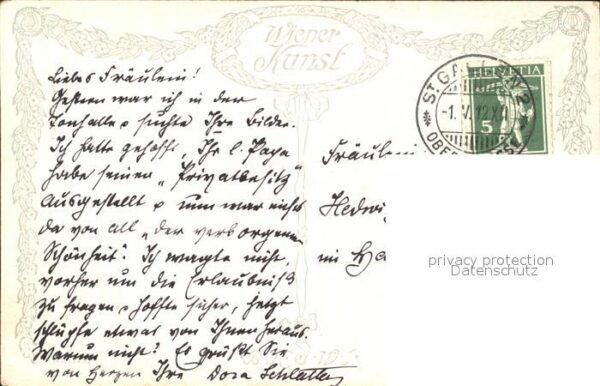 Wiener
Kunst
Liebes Fräulein!
Gestern war ich in der
Tonhalle & suchte Ihre Bilder.
Ich hatte gehofft, Ihr l. Papa
habe seinen "Privatbesitz"
ausgestellt & nun war nichts
da von all "der verborgenen
Schönheit". Ich wagte nicht,
vorher um die Erlaubniß
zu fragen & hoffte sicher, jetzt
schlüpfe etwas von Ihnen heraus.
Warum nicht? Es grüßt Sie
von Herzen Ihre Dora Schlatter
HELVETIA
5
ST. GALLEN 2
-1. V. 12 XII
Fräulein
Hedwig
im
privacy protection
Datenschutz